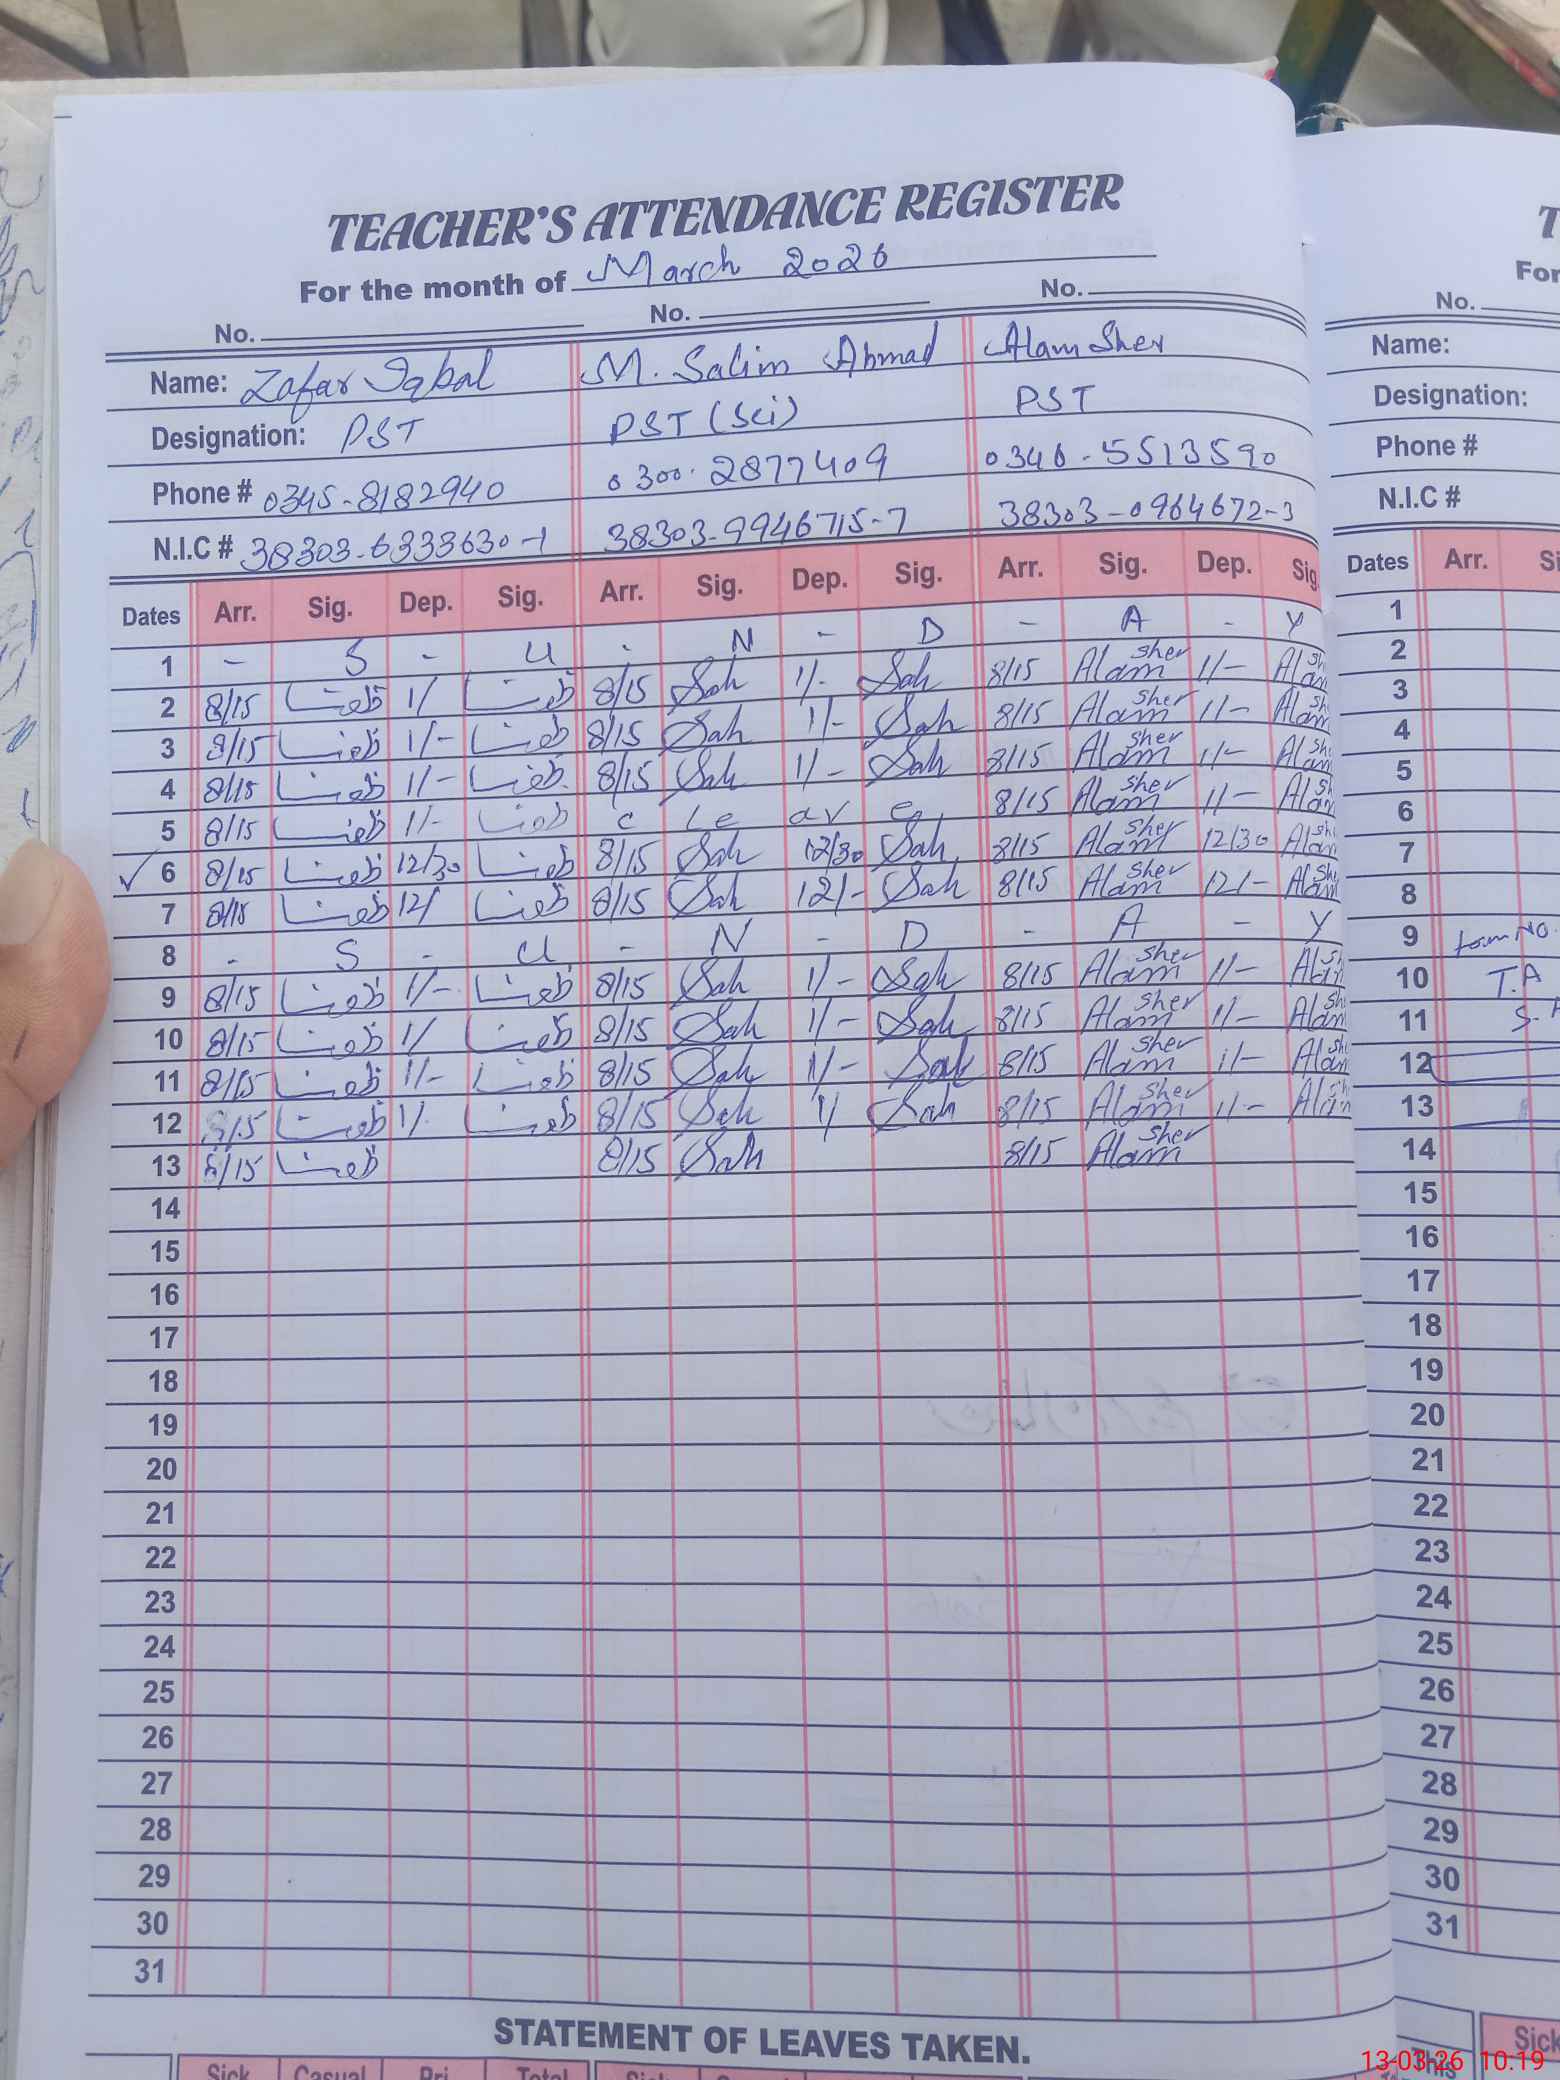 TEACHER'S ATTENDANCE REGISTER
For the month of March 2026
No. No. No.
Name: Zafar Iqbal M. Salim Ahmad Alam Sher
Designation: PST PST (Sci) PST
Phone # 0345-8182940 0300-2877409 0346-5513590
N.I.C # 38303-6333630-1 38303-9946715-7 38303-0964672-3
Dates Arr. Sig. Dep. Sig. Arr. Sig. Dep. Sig. Arr. Sig. Dep. Sig.
1 - S - U - N - D - A - Y
2 8/15 1/ 8/15 Sah 1/- Sah 8/15 Alam Sher 1/- Alam Sh
3 8/15 1/- 8/15 Sah 1/- Sah 8/15 Alam Sher 1/- Alam Sh
4 8/15 1/- 8/15 Sah 1/- Sah 8/15 Alam Sher 1/- Alam Sh
5 8/15 1/- c Le av e 8/15 Alam Sher 1/- Alam Sh
6 8/15 12/30 8/15 Sah 12/30 Sah 8/15 Alam Sher 12/30 Alam Sh
7 8/15 12/ 8/15 Sah 12/- Sah 8/15 Alam Sher 12/- Alam Sh
8 - S - U - N - D - A - Y
9 8/15 1/- 8/15 Sah 1/- Sah 8/15 Alam Sher 1/- Alam Sh
10 8/15 1/ 8/15 Sah 1/- Sah 8/15 Alam Sher 1/- Alam Sh
11 8/15 1/- 8/15 Sah 1/- Sah 8/15 Alam Sher 1/- Alam Sh
12 8/15 1/- 8/15 Sah 1/ Sah 8/15 Alam Sher 1/- Alam Sh
13 8/15 8/15 Sah 8/15 Alam Sher
14
15
16
17
18
19
20
21
22
23
24
25
26
27
28
29
30
31
STATEMENT OF LEAVES TAKEN.
Sick Casual Pri Total Sick
T
For
No.
Name:
Designation:
Phone #
N.I.C #
Dates Arr. Si
1
2
3
4
5
6
7
8
9
10 T.A
11
12
13
14
15
16
17
18
19
20
21
22
23
24
25
26
27
28
29
30
31
Sick
This
13-03-26 10:19